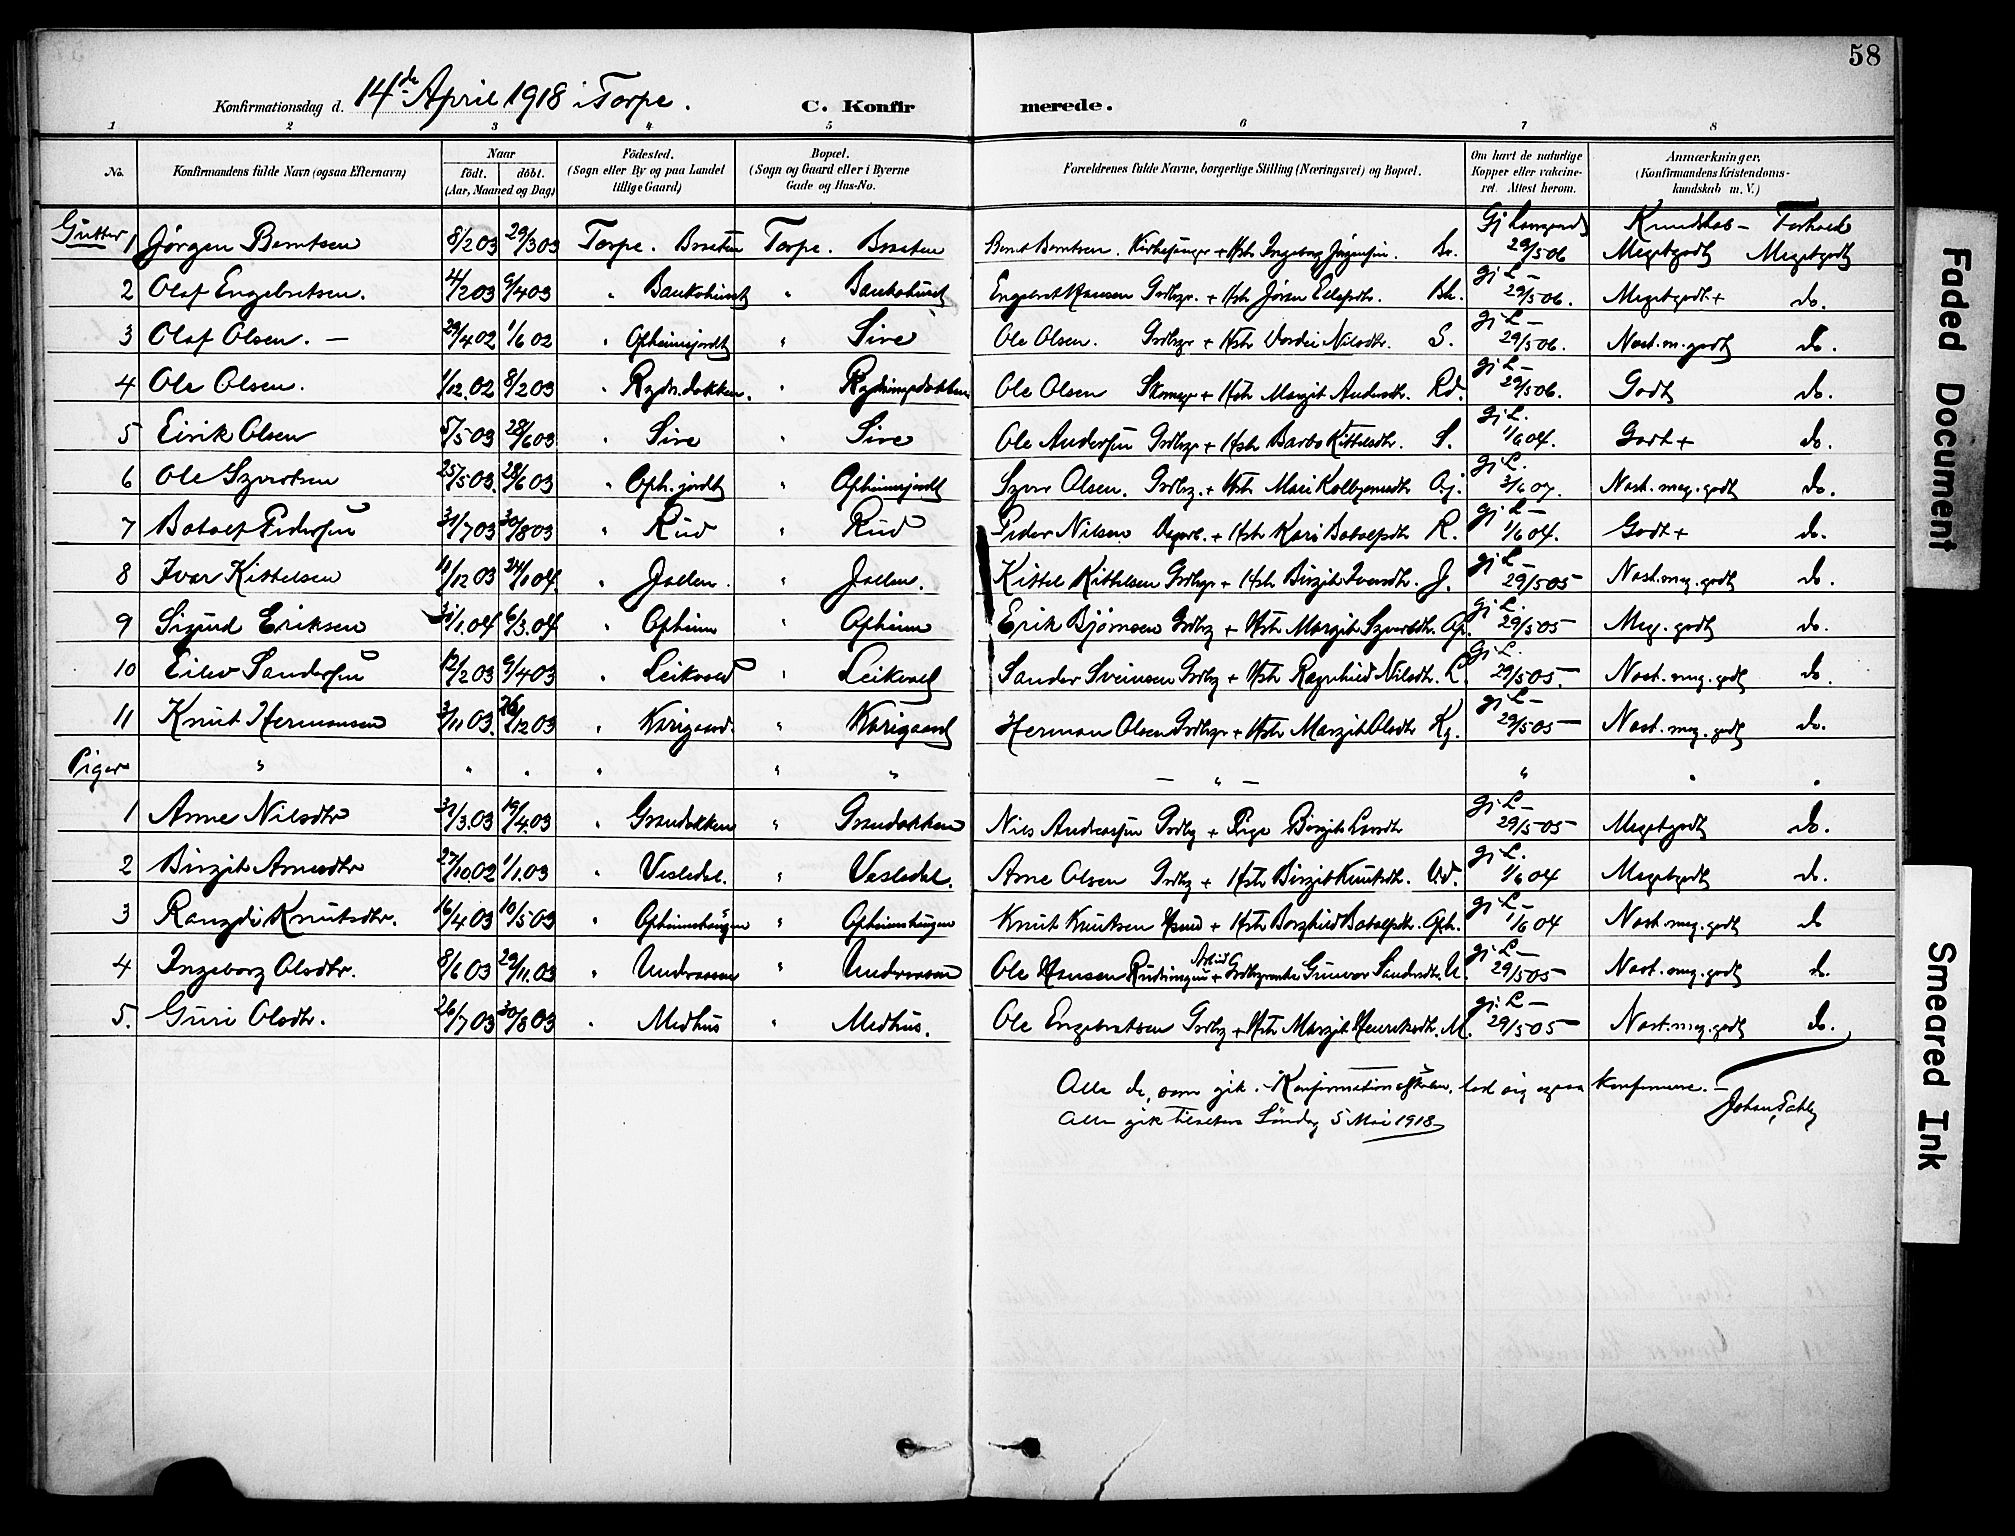 58
Konfirmationsdag d. 14de April 1918 i Torpe. C. Konfirmerede.
1 2 3 4 5 6 7 8
No. Konfirmandens fulde Navn (ogsaa Efternavn) Naar født. døbt. (Aar, Maaned og Dag) Fødested. (Sogn eller By og paa Landet tillige Gaard) Bopæl. (Sogn og Gaard eller i Byerne Gade og Hus-No. Forældrenes fulde Navne, borgerlige Stilling (Næringsvei) og Bopæl. Om havt de naturlige Kopper eller vakcineret. Attest herom. Anmærkninger. (Konfirmandens Kristendomskundskab m. V.)
Gutter Kundskab – Forhold
1 Jørgen Berntsen 8/2 03 29/3 03 Torpe. Braaten Torpe. Braaten Bernt Berntsen. Kirkesanger + Hstr Ingeborg Jørgensen. Br. 29/5 06 Megetgodt Megetgodt
2 Olaf Engebretsen. 4/2 03 6/4 03 " Baukohuset " Baukohuset Engebret Hansen Grdbrgr. + Hstr Jøran Eilefsdtr. Bh. gj L – 29/5 06. Megetgodt+ do.
3 Olaf Olsen. – 29/4 02 1/6 02 " Opheimsjordet " Sire Ole Olsen. Grdbrgr + Hstr Vordei Nilsdtr. S. gj L – 29/5 06. Næst.m.godt do.
4 Ole Olsen. 1/12.02 8/2 03 " Rydn.dokken. " Rydningsdokken Ole Olsen Skomagr + Hstr Margit Andersdtr. Rd. gj L – 29/5 06. Godt do.
5 Eirik Olsen 5/5 03 28/6 03 " Sire " Sire Ole Andersen Grdbrgr + Hstr Barbo Kittelsdtr. S. gj L. 1/6 04. Godt+ do.
6 Ole Syvertsen 25/5 03. 28/6 03 " Oph.jordet " Opheimsjordet Syver Olsen. Grdbrg. + Hstr Mari Kolbjørnsdtr Oj. gj L. 3/6 07. Næst.meg.godt do.
7 Botolf Pedersen 31/7 03 30/8 03 " Rud " Rud Peder Nilsen Dagarb. + Hstr Kari Botolfsdtr R. gj L – 1/6 04. Godt+ do.
8 Ivar Kittelsen 11/12 03 24/1 04. " Jallen. " Jallen. Kittel Kittelsen Grdbrgr + Hstr Birgit Ivarsdtr. J. gj L – 29/5 05 Næst.meg.godt do.
9 Sigurd Eriksen 31/1.04 6/3.04 " Opheim " Opheim Erik Bjørnsen Grdbrg + Hstr Margit Syversdtr. Op. gj L. 29/5 05 – Meg.godt do.
10 Eilev Sandersen 12/2 03 9/4 03 " Leikvold " Leikvold Sander Sveinsen Grdbrg + Hstr Ragnhild Nilsdtr. L. gj L. 29/5 05. – Næst.meg.godt do.
11 Knut Hermansen 3/11 03. 26/12 03 " Korigaard. " Korigaard Herman Olsen Grdbrgr + Hstr Margit Olsdtr Kg. gj L – 29/5 05 – Næst.meg.godt do.
Piger " " " " " " – " – " " "
1 Anne Nilsdtr 31/3.03 19/4.03 " Grandokken " Grandokken Nils Andreassen Grdbrg + Pige Birgit Larsdtr gj L – 29/5 05 – Megetgodt do.
2 Birgit Arnesdtr 27/10.02 1/1.03 " Vesledal. " Vesledal. Arne Olsen Grdbrg + Hstr Birgit Knutsdtr. Vd. gj L. 1/6 04 Megetgodt do.
3 Rangdi Knutsdtr. 16/4 03 10/5 03 " Opheimshaugen " Opheimshaugen Knut Knutsen Hsmd + Hstr Borghild Botolfsdtr. Oph. gj L – 1/6 04 Næst.meg.godt do
4 Ingeborg Olsdtr. 8/6 03 29/11.03 " Underaasen " Underaasen Ole Hansen Rudningen + Gunvor Sandersdtr. U. gj L – 29/5 05 – Næst.meg.godt do.
5. Guri Olsdtr. 26/7 03 30/8 03 " Medhus " Medhus. Ole Engebretsen Grdbrg + Hstr Margit Henriksdtr. M. gj L – 29/5 05 – Næst.meg.godt do.
Alle de, som gik i Konfirmationsskolen, lod sig ogsaa konfirmere. –
Alle gik tilalters Søndag 5 Mai 1918
Faded Document
Smeared Ink